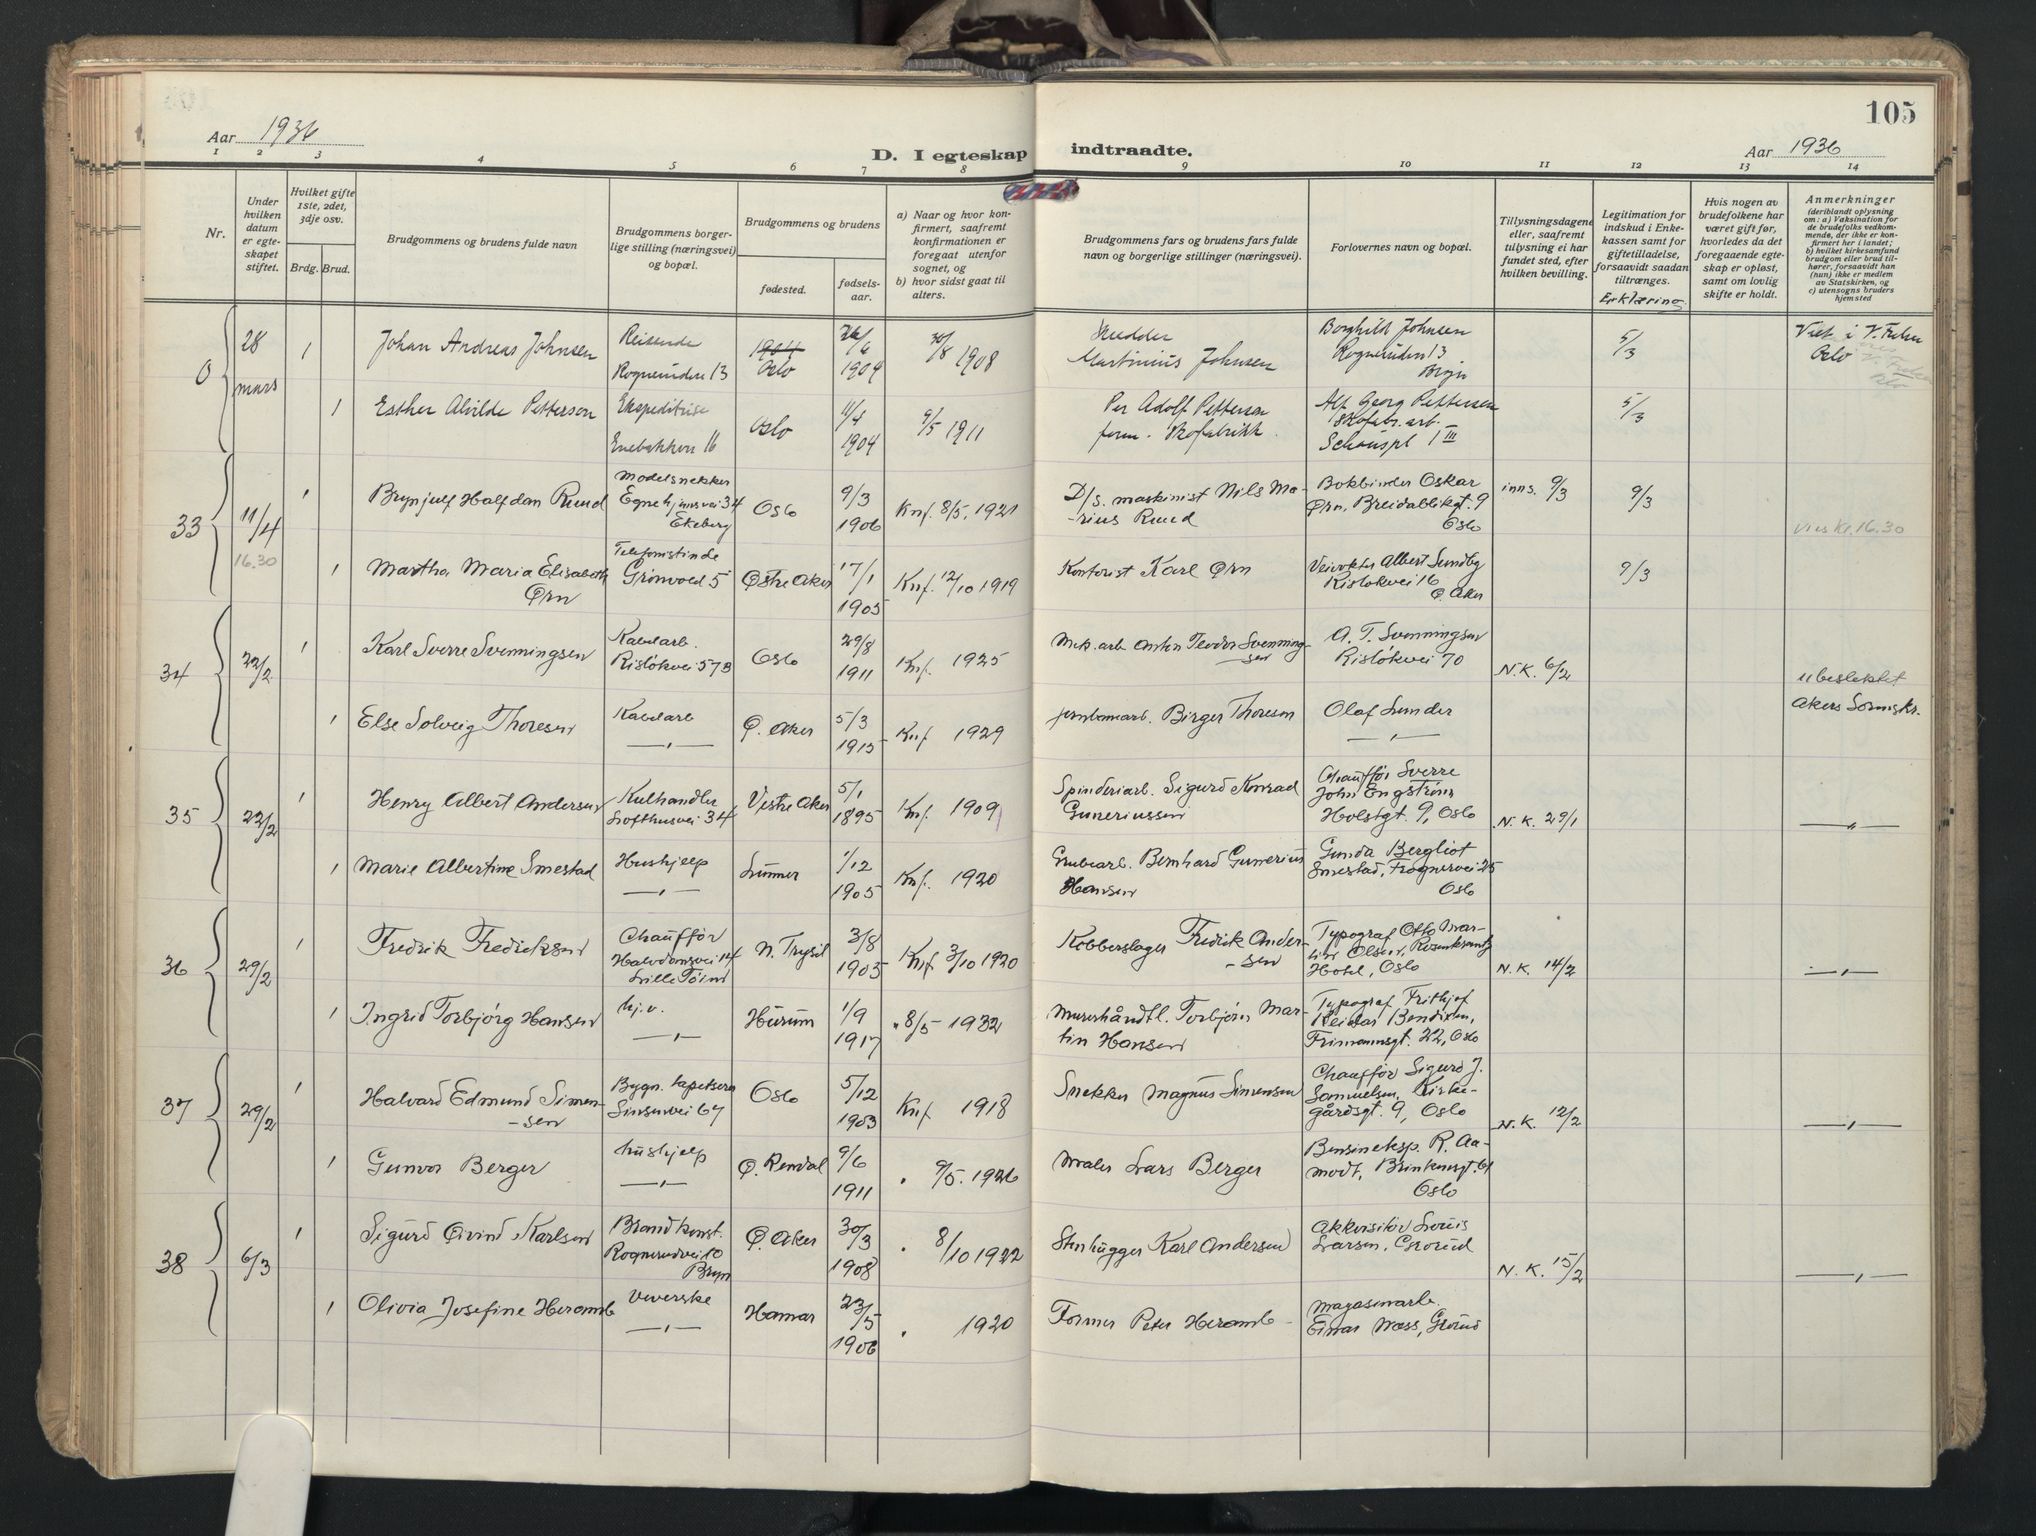 105
Aar 1936
D. I egteskap indtraadte.
Aar 1936
1 2 3 4 5 6 7 8 9 10 11 12 13 14
Nr.
Under
hvilken
datum
er egte-
skapet
stiftet.
Hvilket gifte
1ste, 2det,
3dje osv.
Brdg. Brud.
Brudgommens og brudens fulde navn
Brudgommens borger-
lige stilling (næringsvei)
og bopæl.
Brudgommens og brudens
fødested.
fødsels-
aar.
a) Naar og hvor kon-
firmert, saafremt
konfirmationen er
foregaat utenfor
sognet, og
b) hvor sidst gaat til
alters.
Brudgommens fars og brudens fars fulde
navn og borgerlige stillinger (næringsvei).
Forlovernes navn og bopæl.
Tillysningsdagene
eller, saafremt
tillysning ei har
fundet sted, efter
hvilken bevilling.
Legitimation for
indskud i Enke-
kassen samt for
giftetilladelse,
forsaavidt saadan
tiltrænges.
Erklæring
Hvis nogen av
brudefolkene har
været gift før,
hvorledes da det
foregaaende egte-
skap er opløst,
samt om lovlig
skifte er holdt.
Anmerkninger
(deriblandt oplysning
om: a) Vaksination for
de brudefolks vedkom-
mende, der ikke er kon-
firmert her i landet;
b) hvilket kirkesamfund
brudgom eller brud til-
hører, forsaavidt han
(hun) ikke er medlem
av Statskirken, og
c) utensogns bruders
hjemsted
0
28
mars
1
Johan Andreas Johnsen
Reisende
Rognerudvn 13
1904
Oslo
26/6
1904
30/8 1908
Martinius Johnsen
Borghild Johnsen
Rognerudvn 13
Bryn
5/3
Viet i V. Frelser
Oslo
1
Esther Alvilde Petterson
Ekspeditrise
Enebakkvn 16
Oslo
11/4
1904
9/5 1911
Per Adolf Petterson
form. Skofabrikk.
Alf Georg Pettersen
Skofabr. arb.
Schouspl 1 III
5/3
33
11/4
16.30
1
Brynjulf Halfdan Ruud
Modelsnekker
Egnehjemsvei 34
Ekeberg
Oslo
9/3
1906
Knf. 8/5. 1921
D/S. maskinist Nils Ma-
-rius Ruud
Bokbinder Oskar
Ørn, Breidablikgt. 9
Oslo
inns. 9/3
9/3
Vies Kl. 16.30
1
Martha Maria Elisabeth
Ørn
Telefonistinde
Grønvold 5
Østre Aker
17/1
1905
Knf. 12/10 1919
Kontorist Karl Ørn
Veivokter Albert Sundby
Risløkvei 16
Ø. Aker
9/3
34
22/2
1
Karl Sverre Svenningsen
Kabelarb.
Risløkvei 57B
Oslo
29/8
1911
Knf. 1925
Mek. arb Anton Teodor Svenning-
sen
A. T. Svenningsen
Risløkvei 70
N.K. 6/2
ubeslektet
Akers Sorenskr.
1
Else Solveig Thoresen
Kabelarb
—〃—
Ø. Aker
5/3
1915
Knf 1929
Jernbanearb. Birger Thoresen
Olaf Sunder
—〃—
35
22/2
1
Henry Albert Andersen
Kulhandler
Lofthusvei 34
Vestre Aker
5/1
1895
Knf. 1909
Spinderiarb. Sigurd Konrad
Gunneriussen
Chauffør Sverre
John Engstrøm
Holstgt. 9, Oslo
N.K. 29/1
—〃—
1
Marie Albertine Smestad
Hushjelp
—〃—
Lunner
1/12
1905
Knf. 1920
Grubearb. Bernhard Gunnerius
Hansen
Gunda Bergliot
Smestad, Frognervei 25
Oslo
36
29/2
1
Fredrik Fredriksen
Chauffør
Halvdansvei 14
Lille Tøien
N. Trysil
3/8
1905
Knf 3/10 1920
Kobberslager Fredrik Ander-
-sen
Typograf Otto Mar-
tin Olsen, Rosenkrantz
Hotel, Oslo
N.K. 14/2
—〃—
1
Ingrid Torbjørg Hansen
hj.v.
—〃—
Hurum
1/9
1917
〃 8/5- 1932
Murerhåndtl. Torbjørn Mar-
tin Hansen
Typograf Frithjof
Reidar Bendixen,
Frimannsgt. 22, Oslo
37
29/2
1
Halvard Edmund Simen-
-sen
Bygn. tapetserer
Sinsenvei 67
Oslo
5/12
1903
Knf 1918
Snekker Magnus Simensen
Chauffør Sigurd J.
Samuelsen, Kirke-
gårdsgt. 9, Oslo
N.K. 12/2
—〃—
1
Gunvor Berger
hushjelp
—〃—
Ø. Rendal
9/6
1911
〃 9/5. 1926
Maler Lars Berger
Bensineksp. R. Aa-
modt, Brinkensgt. 61
Oslo
38
6/3
1
Sigurd Øivind Karlsen
Brandkonst.
Rognerudvei 10
Bryn
Ø. Aker
30/3
1908
〃 8/10 1922
Stenhugger Karl Andersen
Akkvisitør Louis
Larsen, Grorud
N.K. 15/2
—〃—
1
Olivia Josefine Heramb
Veverske
—〃—
Hamar
23/5
1906
〃 1920
Former Peter Heramb
Magasinarb.
Einar Næss, Grorud